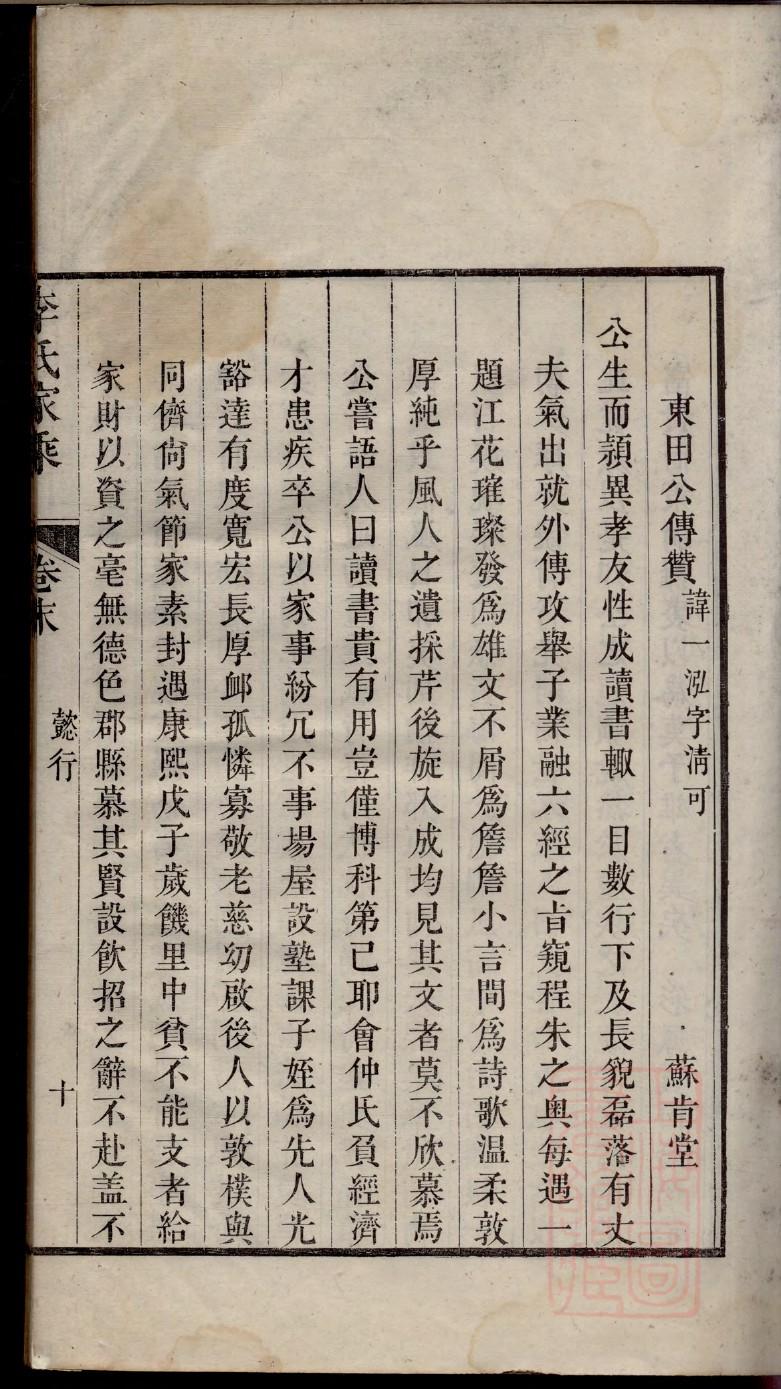 東田公傳贊 諱一泓字淸可 蘇肯堂
公生而頴異孝友性成讀書輙一目數行下及長貌磊落有丈
夫氣出就外傅攻舉子業融六經之㫖窺程朱之奧每遇一
題江花璀璨發爲雄文不屑爲詹詹小言間爲詩歌温柔敦
厚純乎風人之遺採芹後旋入成均見其文者莫不欣慕焉
公嘗語人曰讀書貴有用豈僅博科第已耶會仲氏負經濟
才患疾卒公以家事紛冗不事塲屋設塾課子姪爲先人光
豁達有度寬宏長厚䘏孤憐寡敬老慈幼啟後人以敦樸與
同儕尙氣節家素封遇康熙戊子歲饑里中貧不能支者給
家財以資之毫無德色郡縣慕其賢設飲招之辭不赴盖不
李氏家乘 卷末 懿行 十